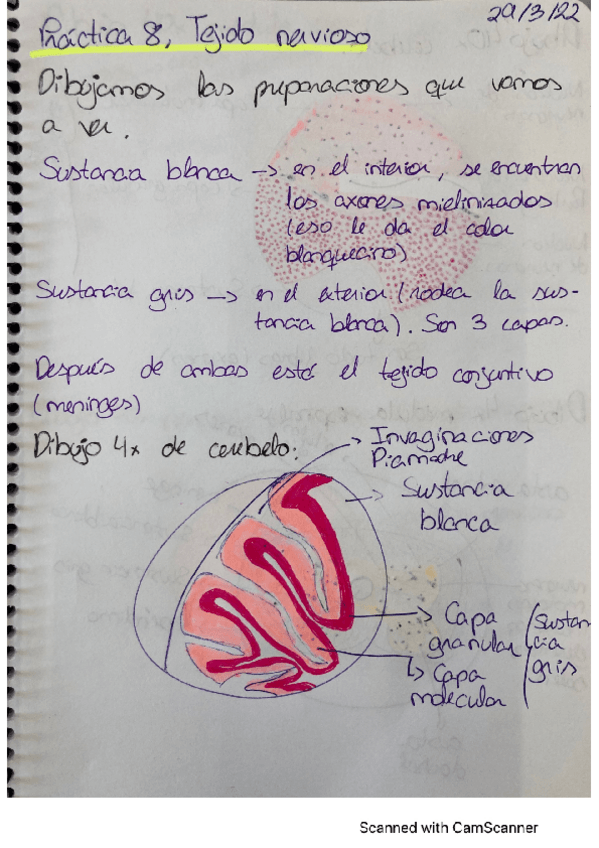 29/3/22
Práctica 8, Tejido nervioso
Dibujamos las preparaciones que vamos
a ver.
Sustancia blanca → en el interior, se encuentran
los axones mielinizados
(eso le da el color
blanquecino)
Sustancia gris → en el exterior (rodea la sus-
tancia blanca). Son 3 capas.
Después de ambas está el tejido conjuntivo
(meninges)
Dibujo 4x de cerebelo:
Invaginaciones
Piamadre
Sustancia
blanca
Capa
granular
Capa
molecular
Sustan
cia
gris
Scanned with CamScanner